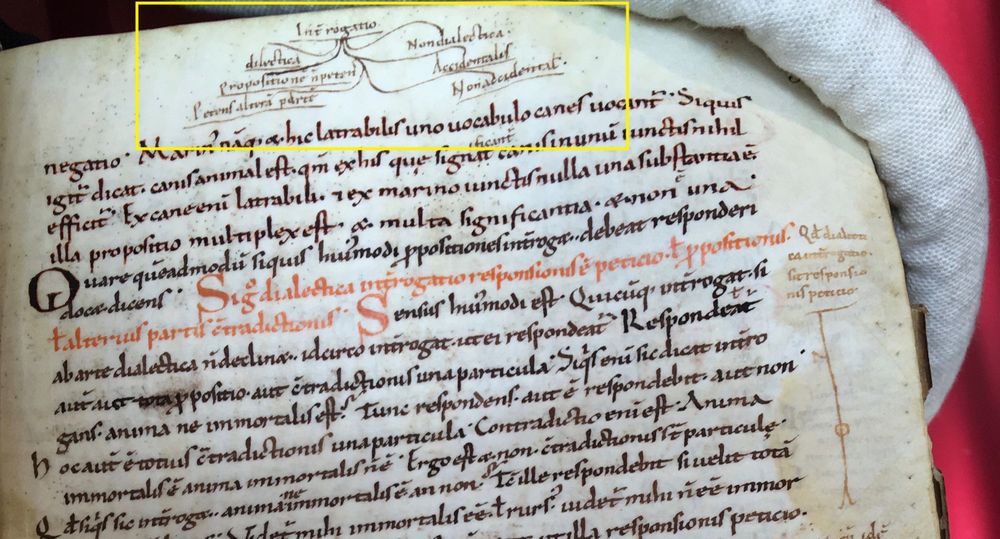 Int̄rogatio
Non dialectica
dilectica
Accidentalis
Propositione n̄ peten
Non accidental'
Petens alterā part̄
negatio · Marin' nāq; & hic latrabilis uno uocabulo canes uocant̄ · Siquis
igit̄ dicat · canis animal est · qm̄ ex his que signant canis inunū iunctis nihil
ificant̄
efficit̄ · Ex cane eni latrabili · & ex marino iunctis nulla una substantia ē ·
illa propositio multiplex est · & multa significantia · & non ē una ·
Quare queadmodū siquis hui'modi ꝓpositiones int̄rogæ · debeat responderi
doc& dicens · Sig dialectica int̄rogatio responsionis ē peticio · ł ꝓpositionis
ł alterius partis c̄tradictionis · Sensus hui'modi est · Quicūq; int̄rogat · si
ab arte dialectica n̄ declin& · idcirco int̄rogat · ut ei respondeat̄ · Respondeat̄
aut aut tota ꝓpositio · aut c̄tradictionis una particula · Siq̄s eni sic dicat int̄ro
gans · anima ne immortalis est? Tunc respondens · aut ē respondebit · aut non ·
hoc aut ē totius c̄tradictionis una particula · Contradictio eni est · Anima
immortalis ē anima immortalis n̄ ē · Ergo est & non · c̄tradictionis st̄ particule ·
Qd siq̄s sic int̄roga · anima ne immortalis ē an non? Te ille respondebit si uelit totā
Videt̄ mihi immortalis eē · ł rurs' · uidet̄ mihi n̄ eē immor
ut illa responsionis peticio ·
Qd dialecti
ca int̄rogatio
sit responsio
nis peticio